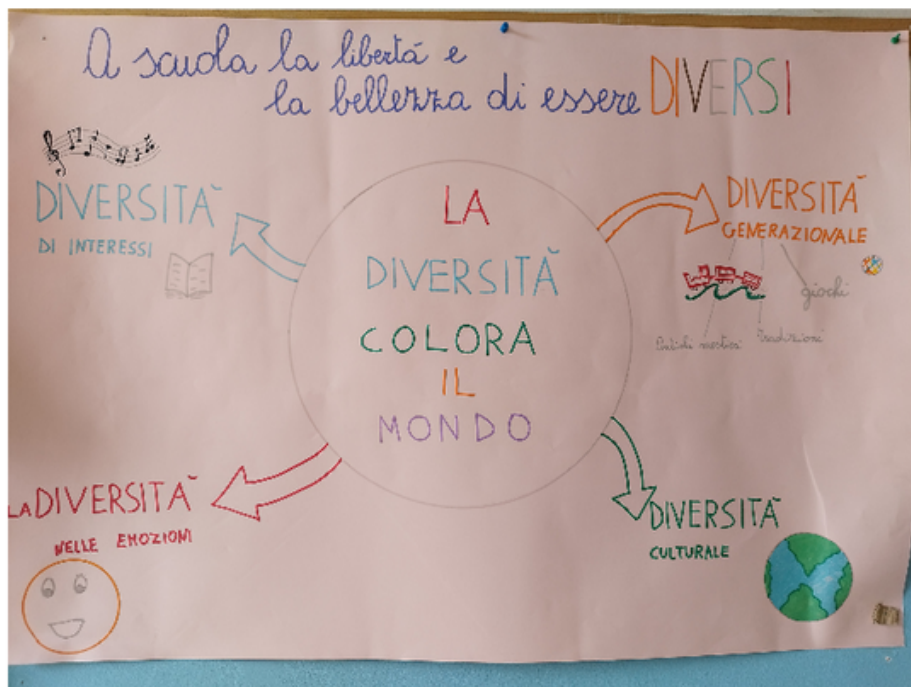 A scuola la libertà e
la bellezza di essere DIVERSI
DIVERSITÀ
DI INTERESSI
LA
DIVERSITÀ
COLORA
IL
MONDO
DIVERSITÀ
GENERAZIONALE
giochi
Antichi mestieri
Tradizioni
LA DIVERSITÀ
NELLE EMOZIONI
DIVERSITÀ
CULTURALE